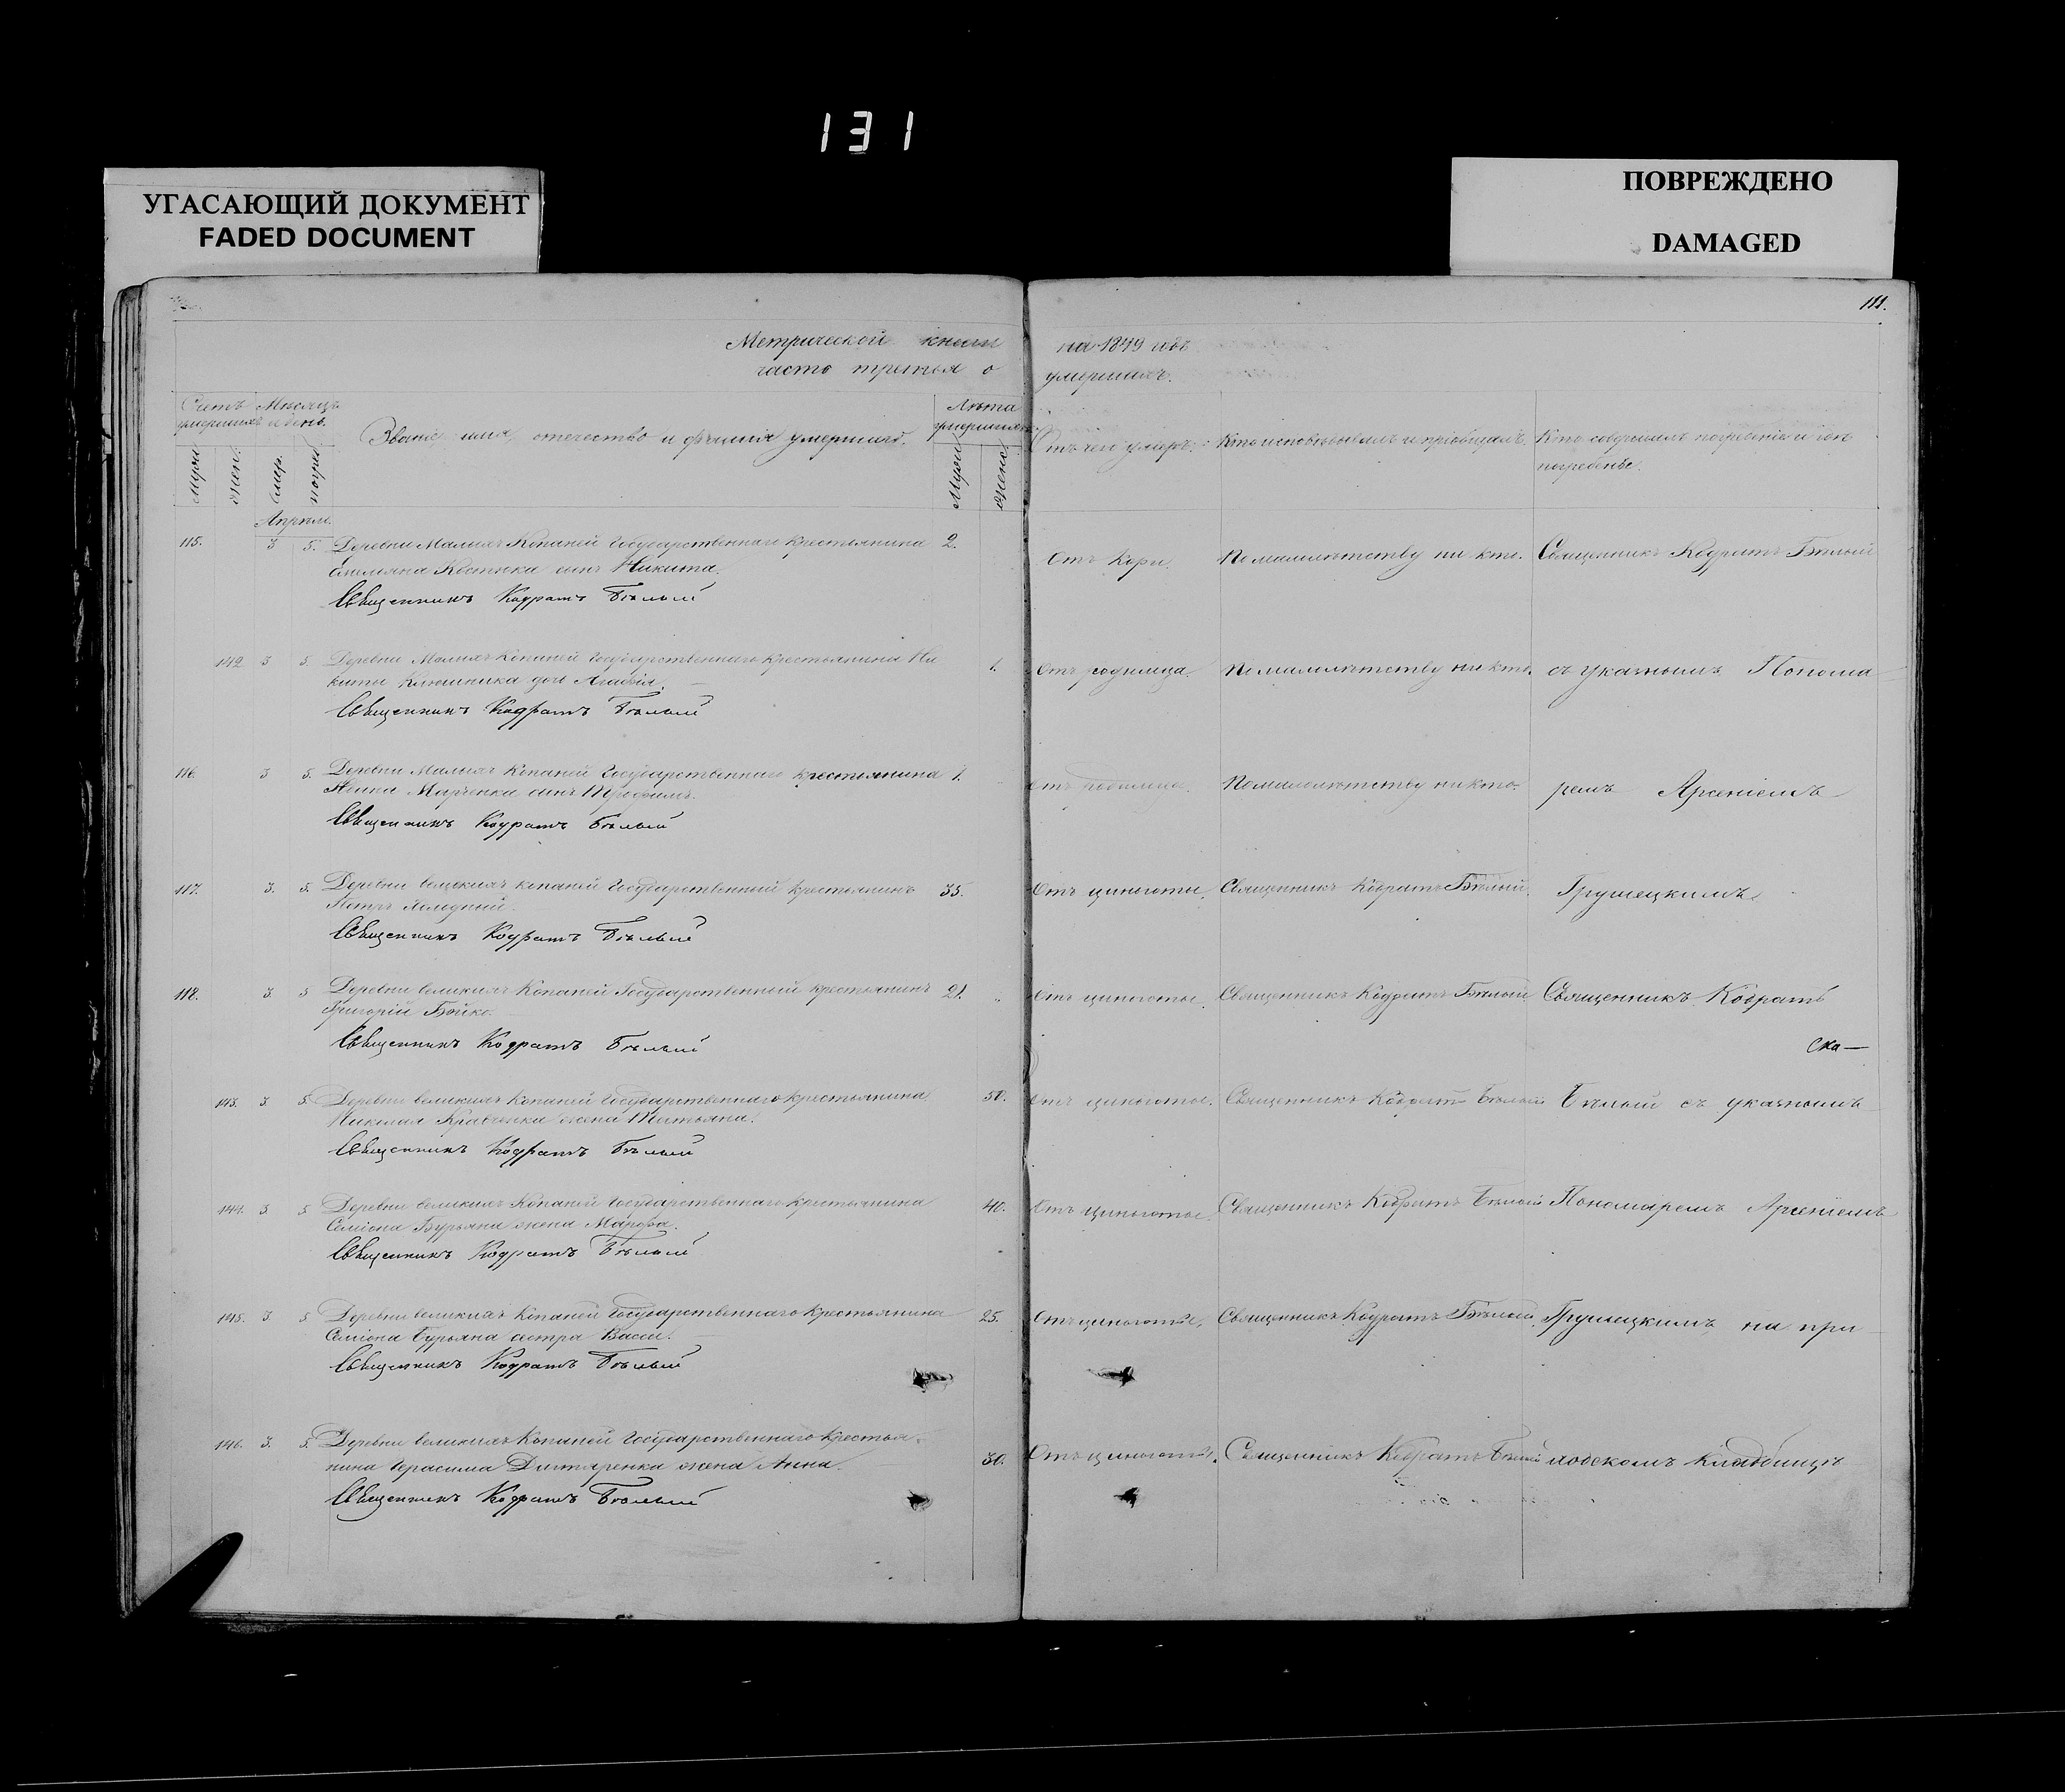 131
УГАСАЮЩИЙ ДОКУМЕНТ
FADED DOCUMENT
ПОВРЕЖДЕНО
DAMAGED
111.
Метрической книги на 1849 годъ
часть третья о умершихъ.
Счетъ умершихъ
Мѣсяцъ и день.
Званіе имя, отечество и фамилія умершихъ.
Лѣта умершихъ
Отъ чего умеръ.
Кто исповѣдывалъ и пріобщалъ.
Кто совершалъ погребеніе и гдѣ
погребены.
муж
жен.
смер.
погре
Муж
женс
Апрѣль
115. 3 5. Деревни Малыхъ Копаней Государственнаго крестьянина 2. Отъ кори. По малолѣтству ни кто. Священникъ Кодратъ Бѣлый
Емельяна Костюка сынъ Никита.
Священникъ Кодратъ Бѣлый
142 3 5. Деревни Малыхъ Копаней Государственнаго крестьянина Ни 1. Отъ родимца. По малолѣтству ни кто. съ указнымъ Понома
киты Ключника дочь Агафія.
Священникъ Кодратъ Бѣлый
116. 3 5. Деревни Малыхъ Копаней Государственнаго крестьянина 1. Отъ родимца. По малолѣтству ни кто. ремъ Арсеніемъ
Марченка сынъ Трофимъ.
Священникъ Кодратъ Бѣлый
117. 3. 5. Деревни великихъ копаней Государственный крестьянинъ 35. Отъ цынготы. Священникъ Кодратъ Бѣлый. Грушецкимъ
Петръ Холодный.
Священникъ Кодратъ Бѣлый
118. 3. 5 Деревни великихъ Копаней Государственный крестьянинъ 21. Отъ цынготы. Священникъ Кодратъ Бѣлый Священникъ Кодратъ
Григорій Бойко.
Священникъ Кодратъ Бѣлый
Ска—
143. 3. 5. Деревни великихъ Копаней Государственнаго крестьянина 50. Отъ цынготы. Священникъ Кодратъ Бѣлый Бѣлый съ указнымъ
Николая Кравченка жена Татьяна.
Священникъ Кодратъ Бѣлый
144. 3. 5 Деревни великихъ Копаней Государственнаго крестьянина 40. Отъ цынготы. Священникъ Кодратъ Бѣлый Пономаремъ Арсеніемъ
Семіона Бурьяна жена Марфа.
Священникъ Кодратъ Бѣлый
145. 3. 5 Деревни великихъ Копаней Государственнаго крестьянина 25. Отъ цынготы. Священникъ Кодратъ Бѣлый. Грушецкимъ на при
Семіона Бурьяна сестра
Священникъ Кодратъ Бѣлый
146. 3. 5. Деревни великихъ Копаней Государственнаго крестья- 30. Отъ цынготы. Священникъ Кодратъ Бѣлый ходскомъ кладбищѣ
нина Герасима Дегтяренка жена Анна.
Священникъ Кодратъ Бѣлый